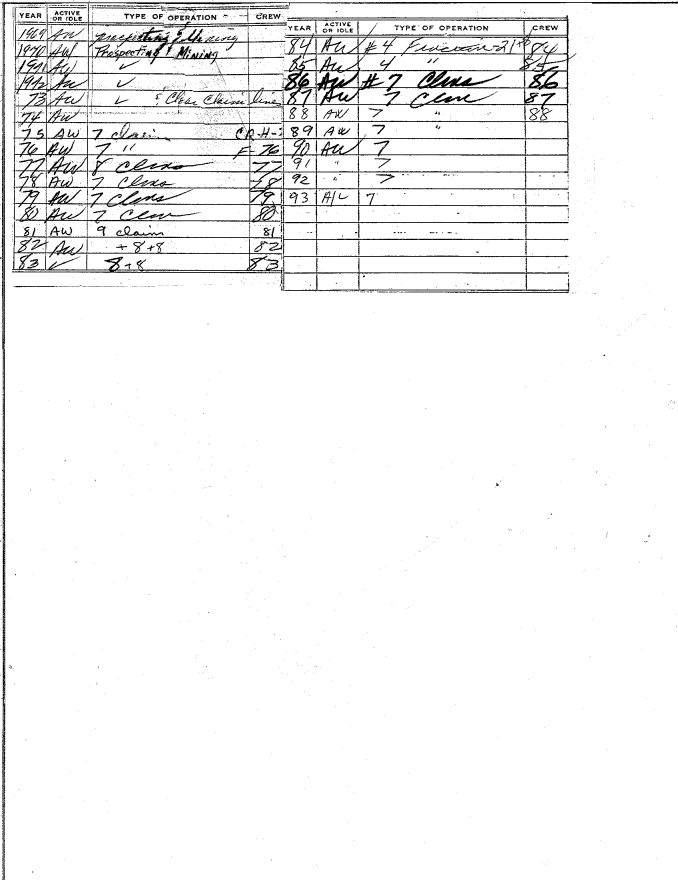 YEAR ACTIVE OR IDLE TYPE OF OPERATION CREW
1969 AW prospecting & Mining
1970 AW Prospecting & Mining
1971 AW ✓
1972 AW ✓
73 AW ✓ & Clear Claim line
74 AW
75 AW 7 claim CR-H-
76 AW 7 " F-76
77 AW 8 Clms 77
78 AW 7 Clms 78
79 AW 7 Clms 79
80 AW 7 Clm 80
81 AW 9 claim 81
82 AW + 8+8 82
83 ✓ 8+8 83
YEAR ACTIVE OR IDLE TYPE OF OPERATION CREW
84 AW # 4 84
85 AW 4 " 85
86 AW # 7 Clms 86
87 AW 7 Clm 87
88 AW 7 " 88
89 AW 7 "
90 AW 7
91 " 7
92 " 7
93 A/L 7